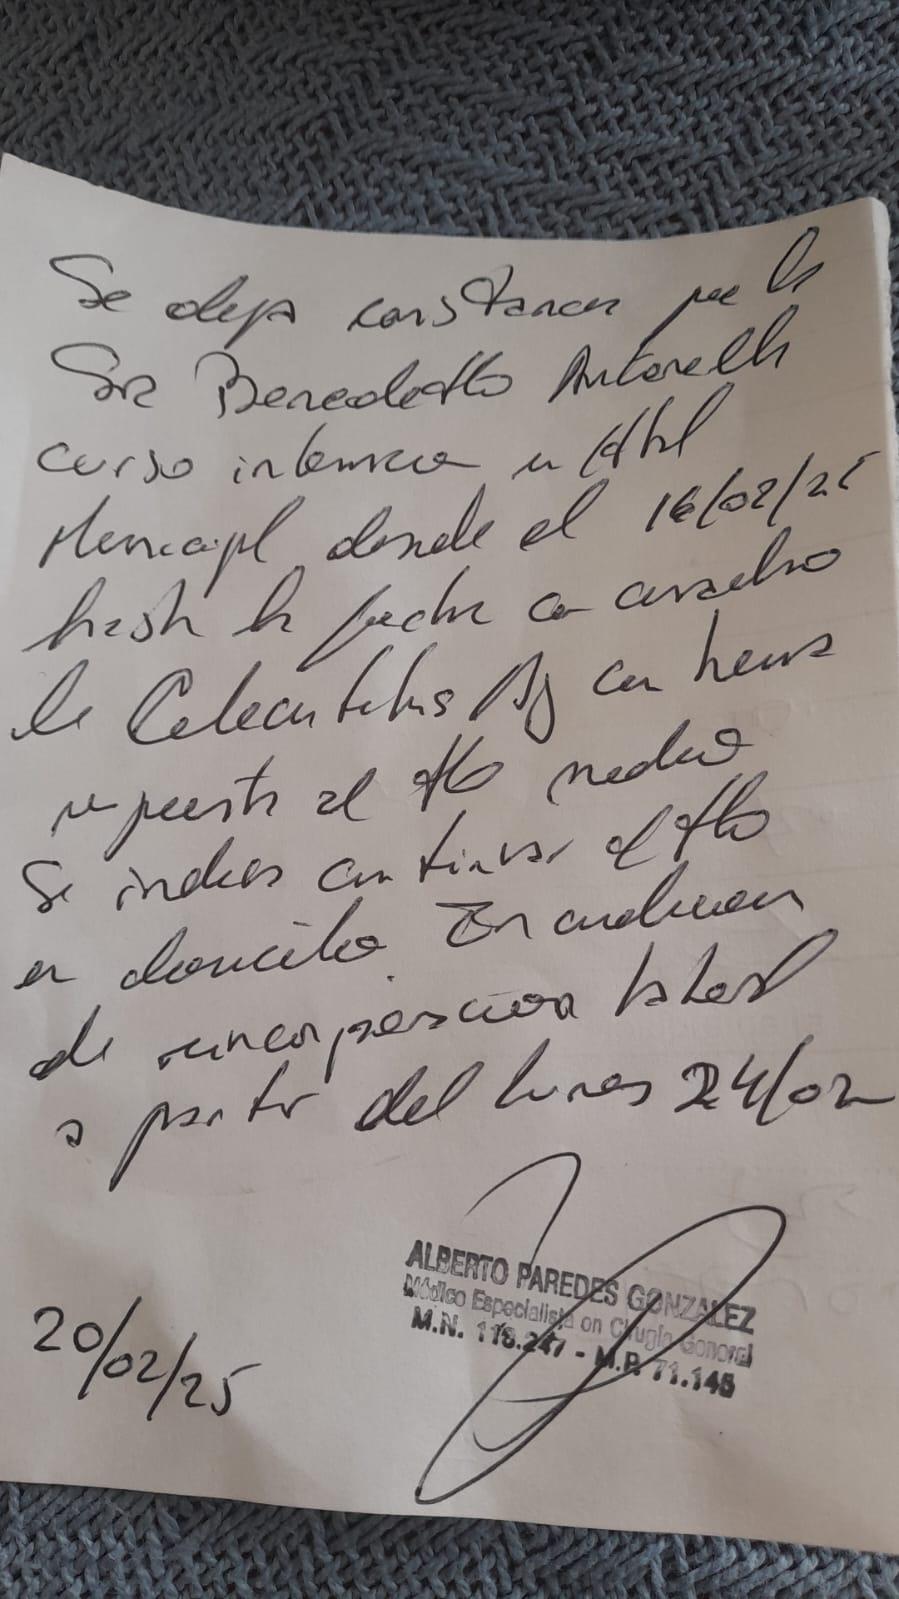 Se deja constancia que la
Sra Benedetto Antonella
curso internacion en Htal
Municipal desde el 16/02/25
hasta la fecha con cuadro
de Colecistitis Ag con buena
respuesta al tto medico
Se indica continuar el tto
en domicilio En condicion
de reincorporacion laboral
a partir del lunes 24/02
ALBERTO PAREDES GONZALEZ
Médico Especialista en Cirugía General
M.N. 118.247 - M.P. 71.145
20/02/25